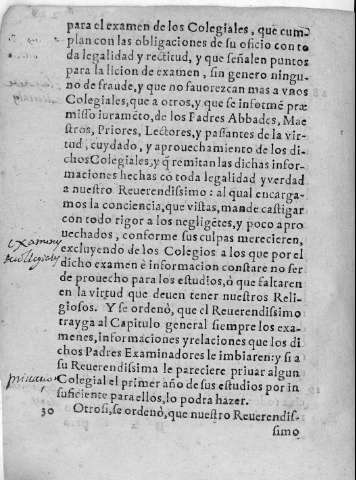 para el examen de los Colegiales, que cum
plan con las obligaciones de su oficio con to
da legalidad y rectitud, y que señalen puntos
para la licion de examen, sin genero ningu-
no de fraude, y que no fauorezcan mas a vnos
Colegiales, que a otros, y que se informē præ
misso iuramēto, de los Padres Abbades, Mae
stros, Priores, Lectores, y passantes de la vir-
tud, cuydado, y aprouechamiento de los di-
chos Colegiales, y q̄ remitan las dichas infor-
maciones hechas cō toda legalidad y verdad
a nuestro Reuerendissimo: al qual encarga-
mos la conciencia, que vistas, mande castigar
con todo rigor a los negligētes, y poco apro
uechados, conforme sus culpas merecieren,
excluyendo de los Colegios a los que por el
dicho examen è informacion constare no ser
de prouecho para los estudios, ò que faltaren
en la virtud que deuen tener nuestros Reli-
giosos. Y se ordenò, que el Reuerendissimo
trayga al Capitulo general siempre los exa-
menes, informaciones y relaciones que los di
chos Padres Examinadores le imbiaren: y si a
su Reuerendissima le pareciere priuar algun
Colegial el primer año de sus estudios por in
suficiente para ellos, lo podra hazer.
30 Otrosi, se ordenò, que nuestro Reuerendis-
simo